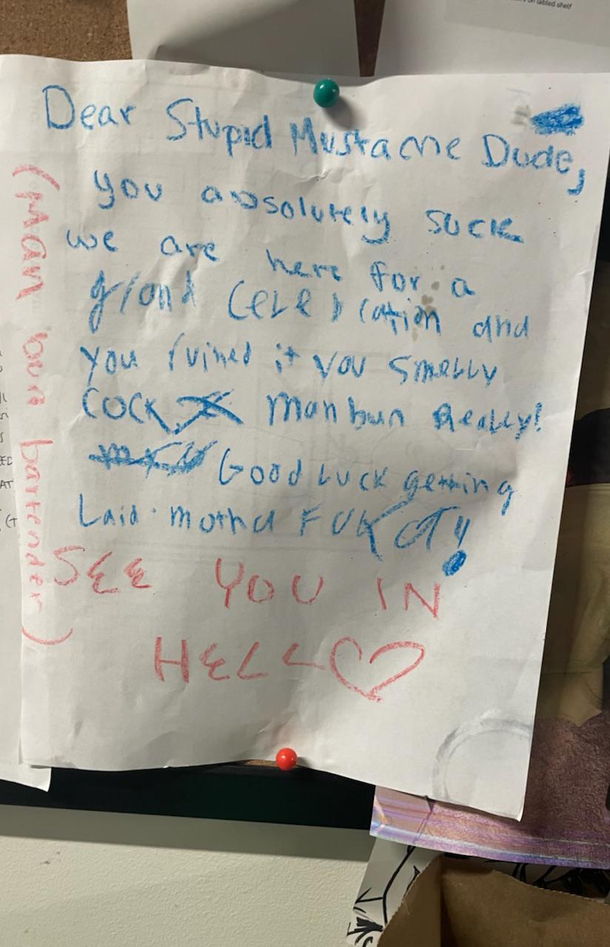 on labled shelf
Dear Stupid Mustache Dude,
you absolutely suck
we are here for a
grand Celebration and
you ruined it you smelly
COCK. Man bun Really!
Good Luck getting
Laid mother FUKCR!
SEE YOU IN
HELL♡
(Man bun bartender)